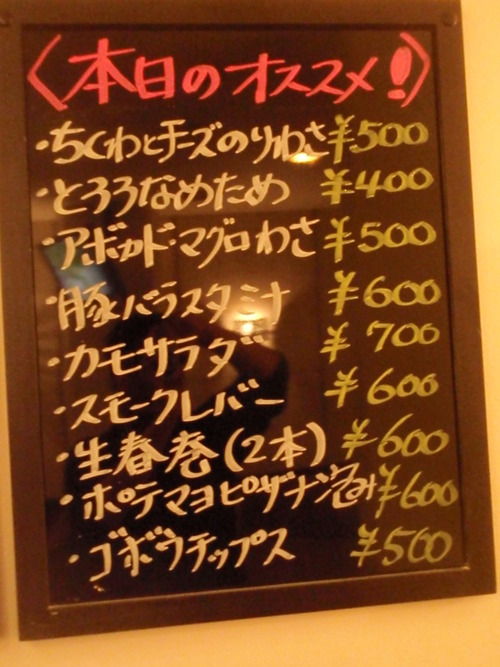 〈本日のオススメ!〉
・ちくわとチーズのりわさ ¥500
・とろろなめため ¥400
・アボカド・マグロわさ ¥500
・豚バラスタミナ ¥600
・カモサラダ ¥700
・スモークレバー ¥600
・生春巻(2本) ¥600
・ポテマヨピザ ¥600
・ゴボウチップス ¥500